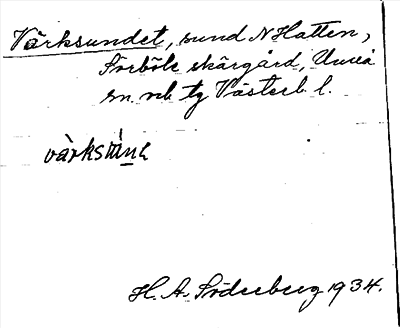 Vårksundet, sund N Hatten,
Förböle skärgård, Umeå
sn. nb. tg Västerb l.
H. A. Söderberg 1934.